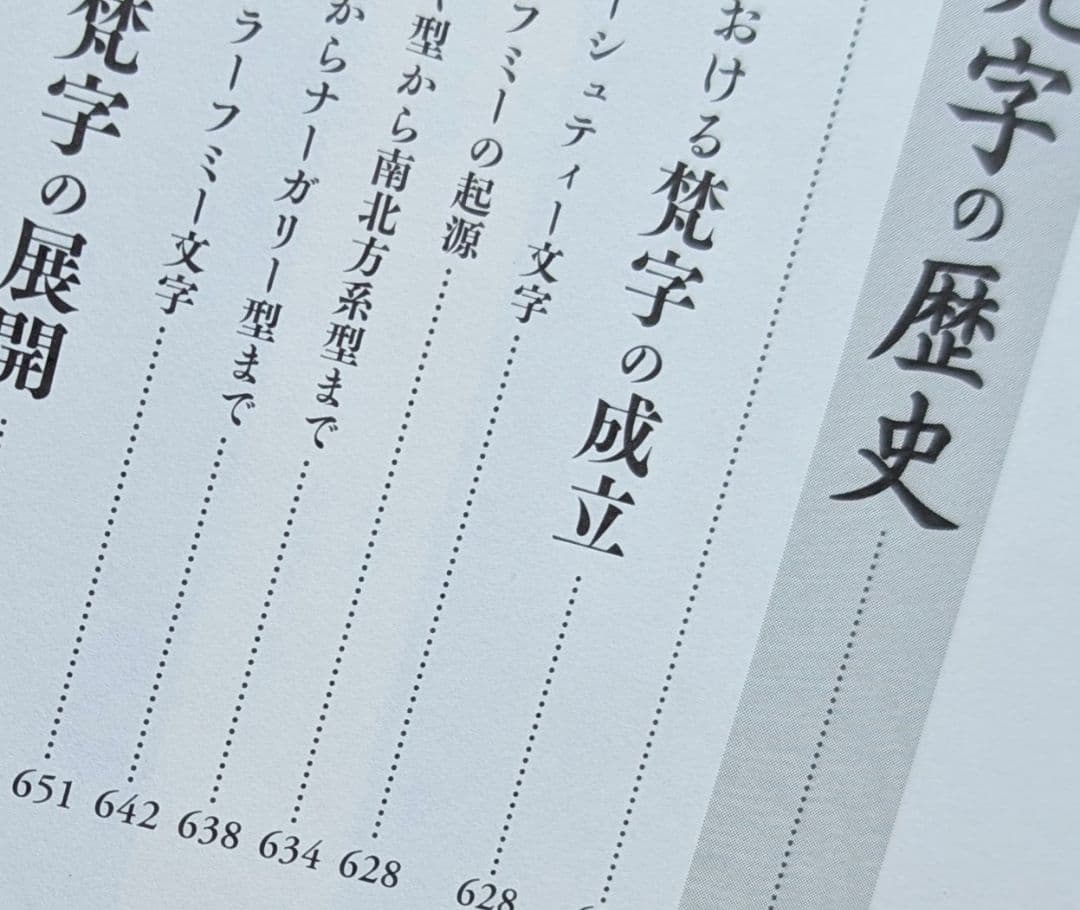 字の歴史
おける梵字の成立……628
シュティー文字……628
フミーの起源……634
型から南北方系型まで……638
からナーガリー型まで……642
ラーフミー文字……651
梵字の展開